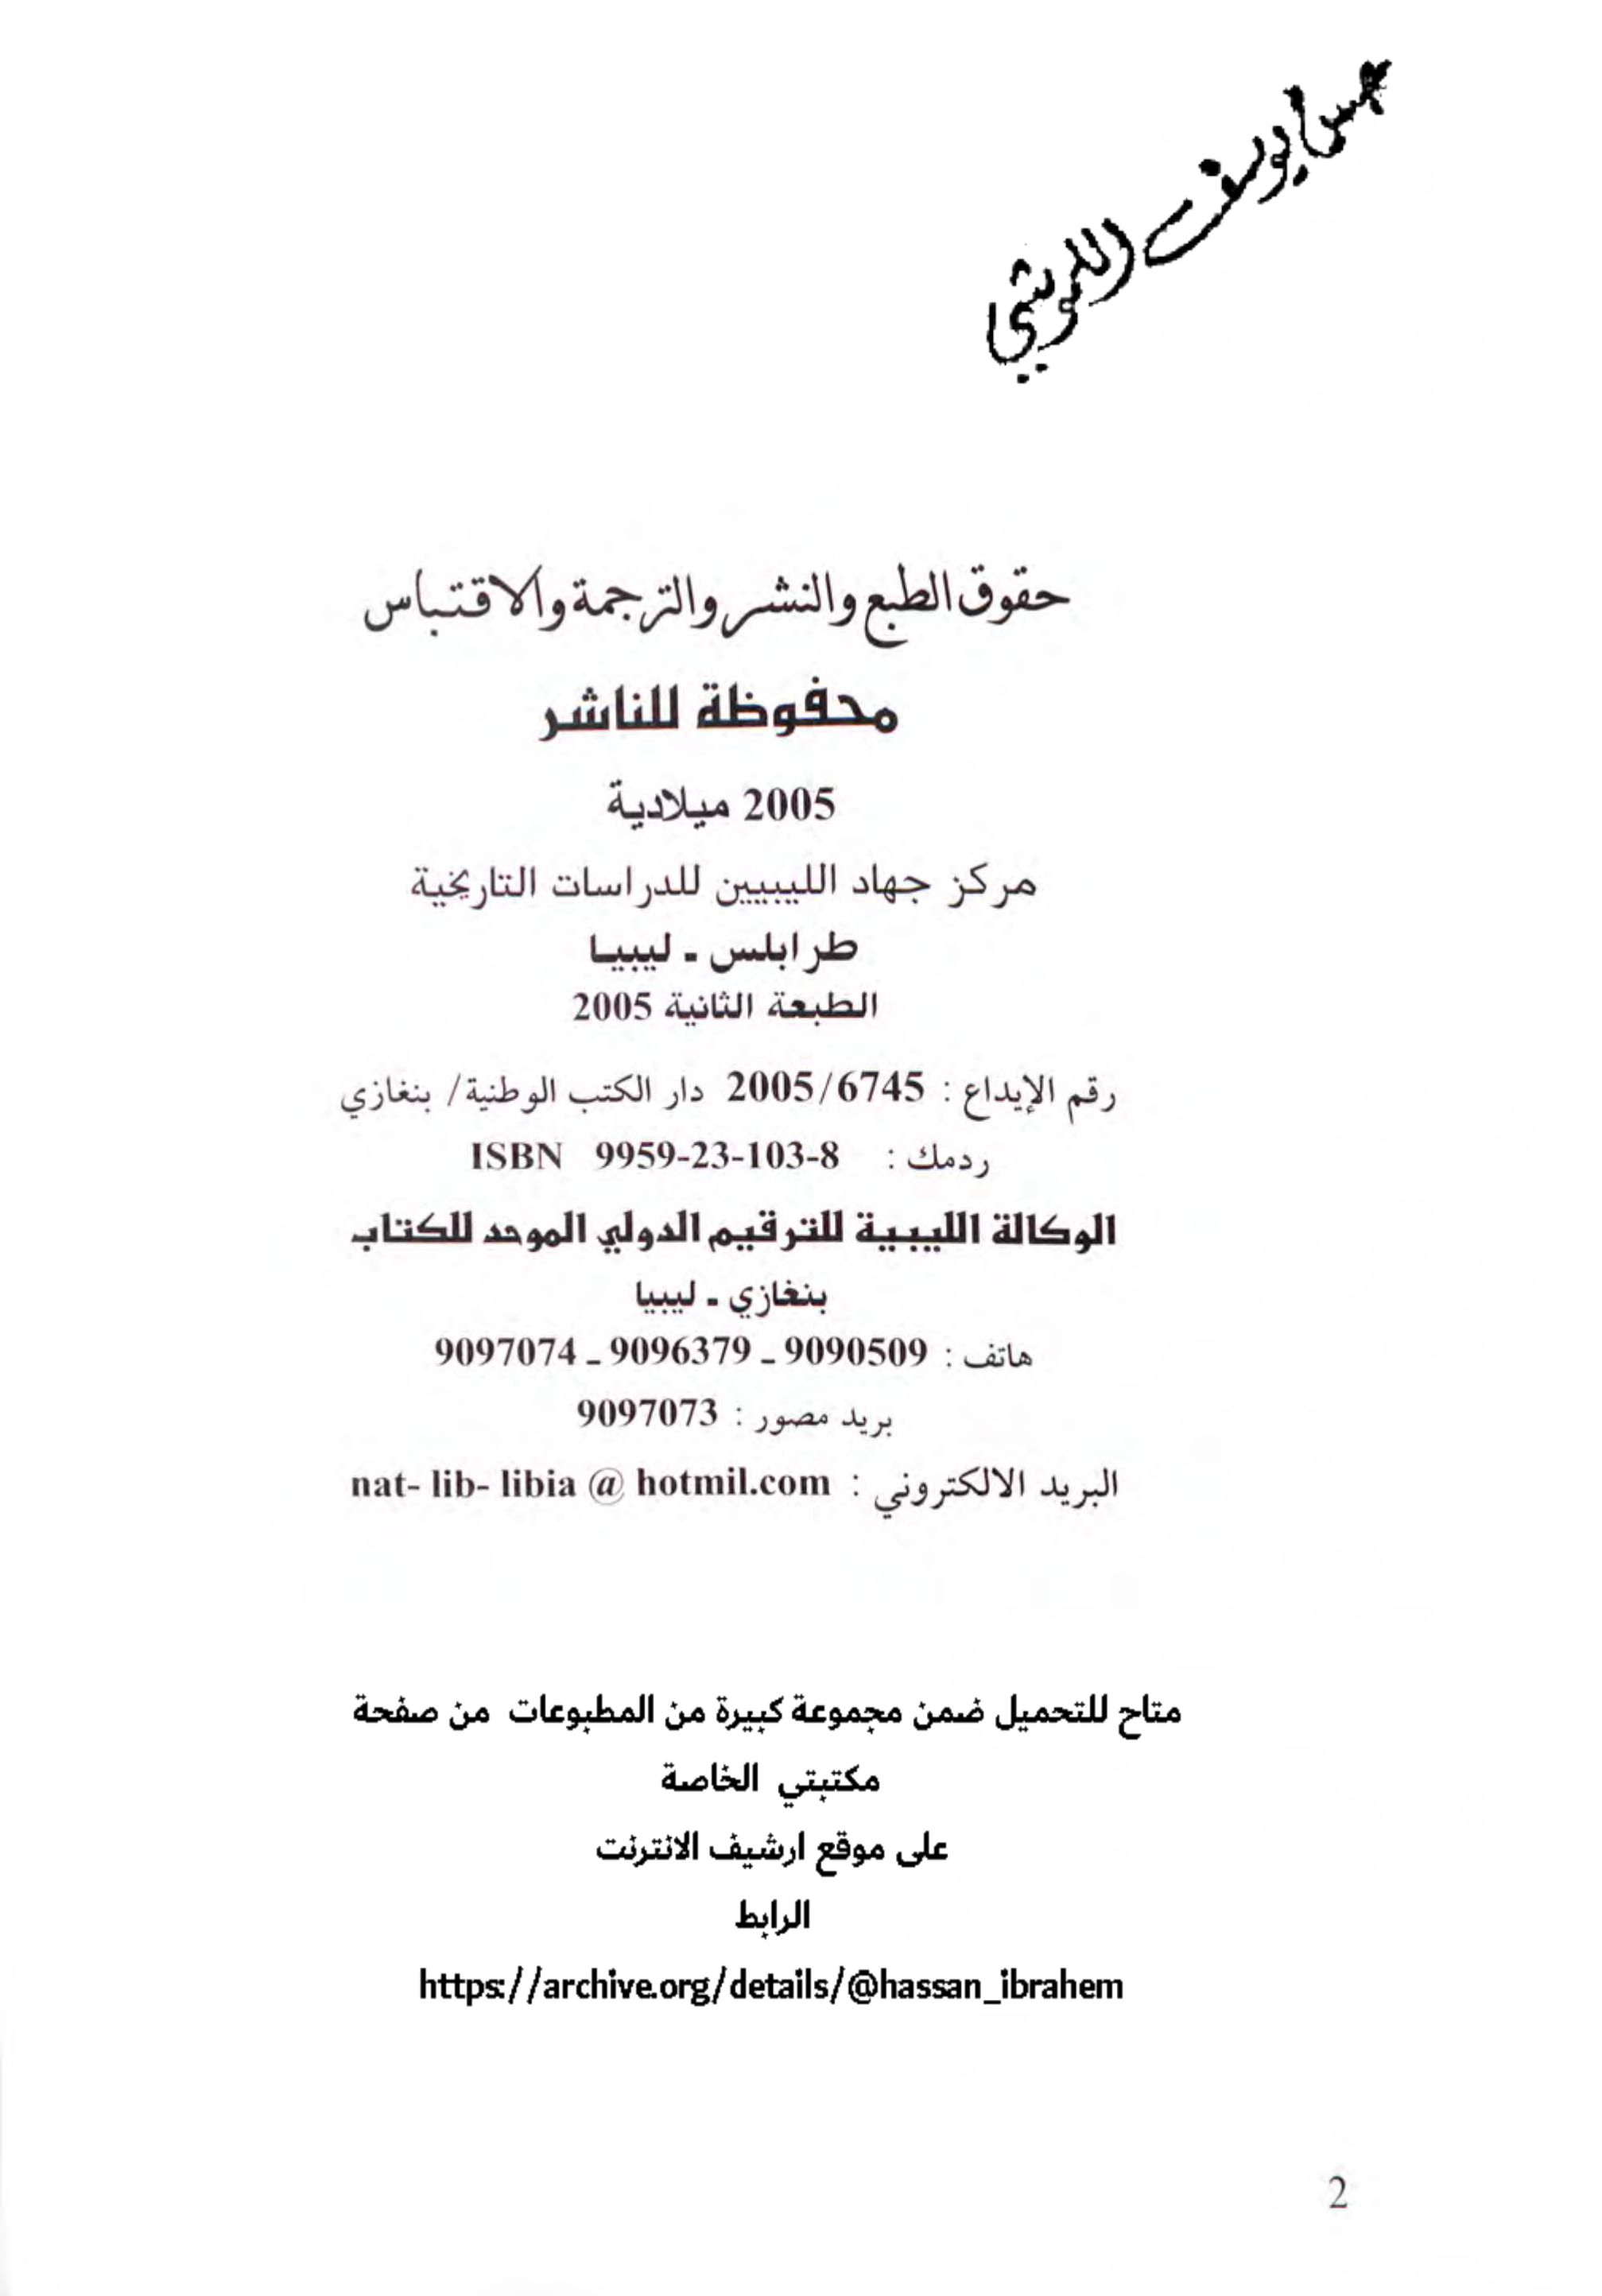 يوسف
حقوق الطبع والنشر والترجمة والاقتباس
محفوظة للناشر
2005 ميلادية
مركز جهاد الليبيين للدراسات التاريخية
طرابلس - ليبيا
الطبعة الثانية 2005
رقم الإيداع : 2005/6745 دار الكتب الوطنية/ بنغازي
ردمك : ISBN 9959-23-103-8
الوكالة الليبية للترقيم الدولي الموحد للكتاب
بنغازي - ليبيا
هاتف : 9090509 - 9096379 - 9097074
بريد مصور : 9097073
البريد الالكتروني : nat- lib- libia @ hotmil.com
متاح للتحميل ضمن مجموعة كبيرة من المطبوعات من صفحة
مكتبتي الخاصة
على موقع ارشيف الانترنت
الرابط
https://archive.org/details/@hassan_ibrahem
2